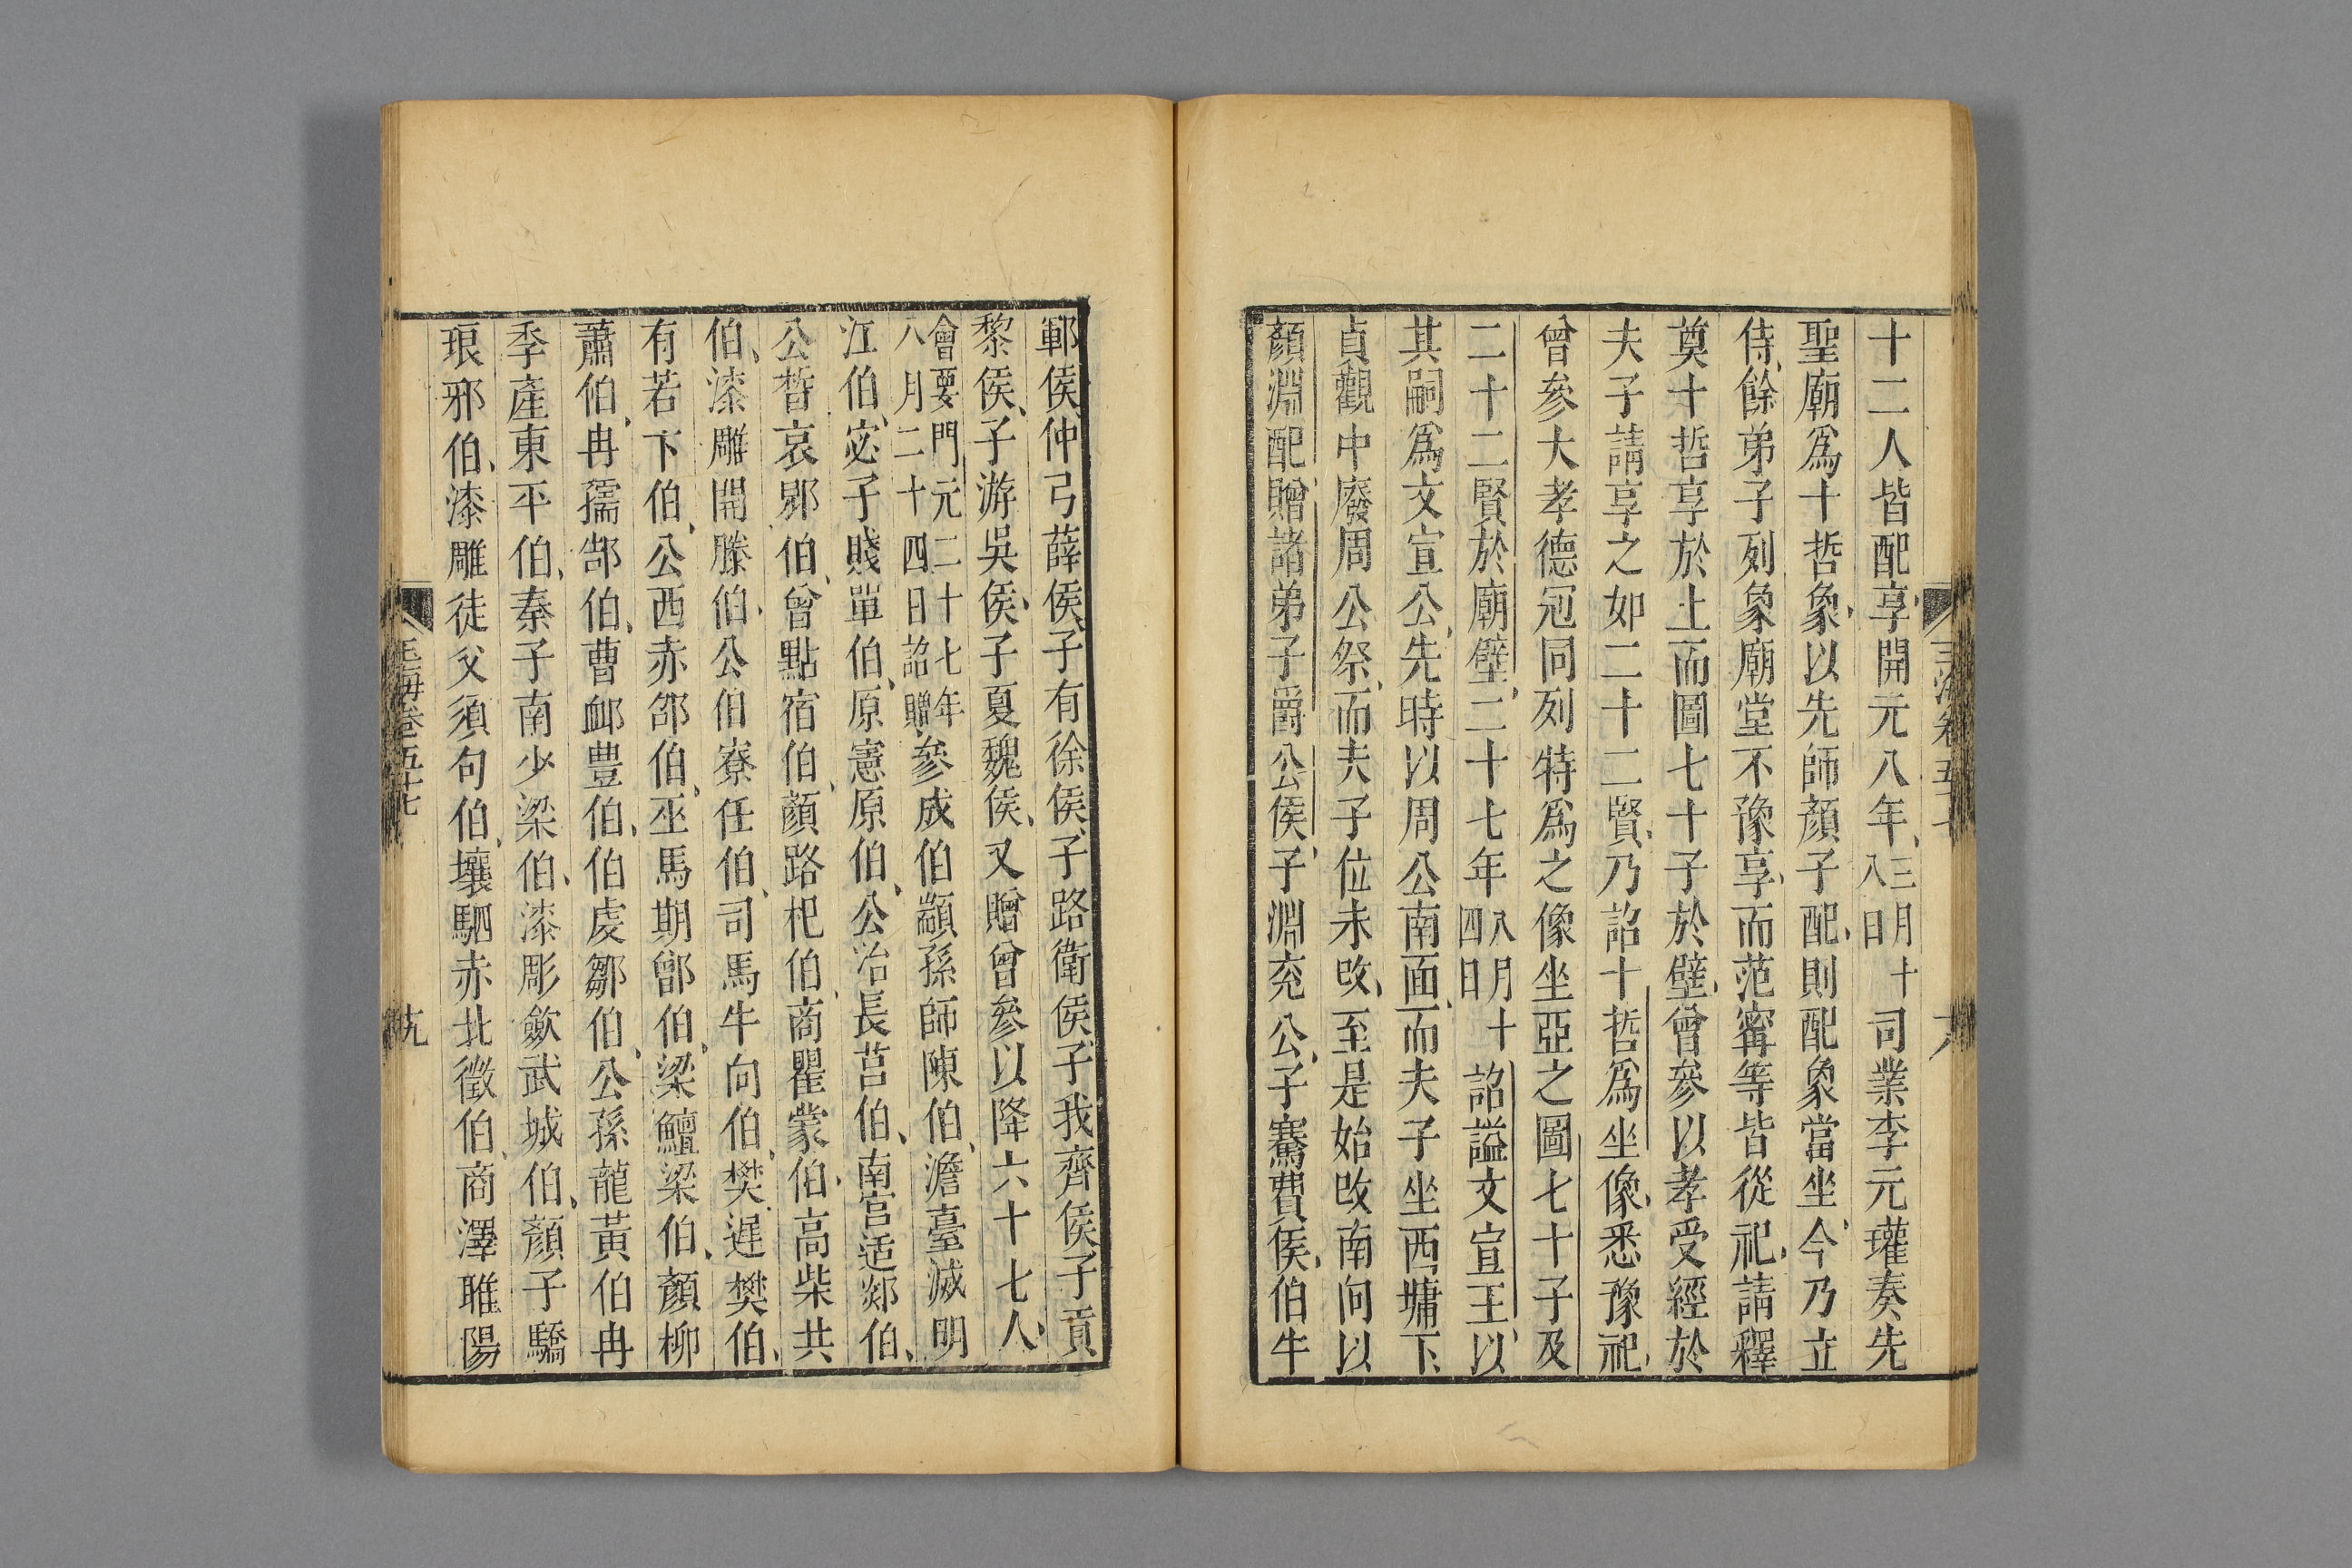 十二人皆配享開元八年三月十八日司業李元瓘奏先
聖廟爲十哲象以先師顏子配則配象當坐今乃立
侍餘弟子列象廟堂不豫享而范甯等皆從祀請釋
奠十哲享於上而圖七十子於壁曾參以孝受經於
夫子請享之如二十二賢乃詔十哲爲坐像悉豫祀
曾參大孝德冠同列特爲之像坐亞之圖七十子及
二十二賢於廟壁二十七年八月十四日詔謚文宣王以
其嗣爲文宣公先時以周公南面而夫子坐西墉下
貞觀中廢周公祭而夫子位未改至是始改南向以
顏淵配贈諸弟子爵公侯子淵兖公子騫費侯伯牛
鄆侯仲弓薛侯子有徐侯子路衛侯子我齊侯子貢
黎侯子游吳侯子夏魏侯又贈曾參以降六十七人
會要門元二十七年八月二十四日詔贈參成伯顓孫師陳伯澹臺滅明
江伯宓子賤單伯原憲原伯公冶長莒伯南宮适郯伯
公晳哀郳伯曾點宿伯顏路杞伯商瞿蒙伯高柴共
伯漆雕開滕伯公伯寮任伯司馬牛向伯樊遲樊伯
有若卞伯公西赤郜伯巫馬期鄫伯梁鱣梁伯顏柳
蕭伯冉孺郜伯曹卹豊伯伯虔鄒伯公孫龍黃伯冉
季產東平伯秦子南少梁伯漆彫歛武城伯顏子驕
琅邪伯漆雕徒父須句伯壤駟赤北徵伯商澤睢陽
玉海卷五十七